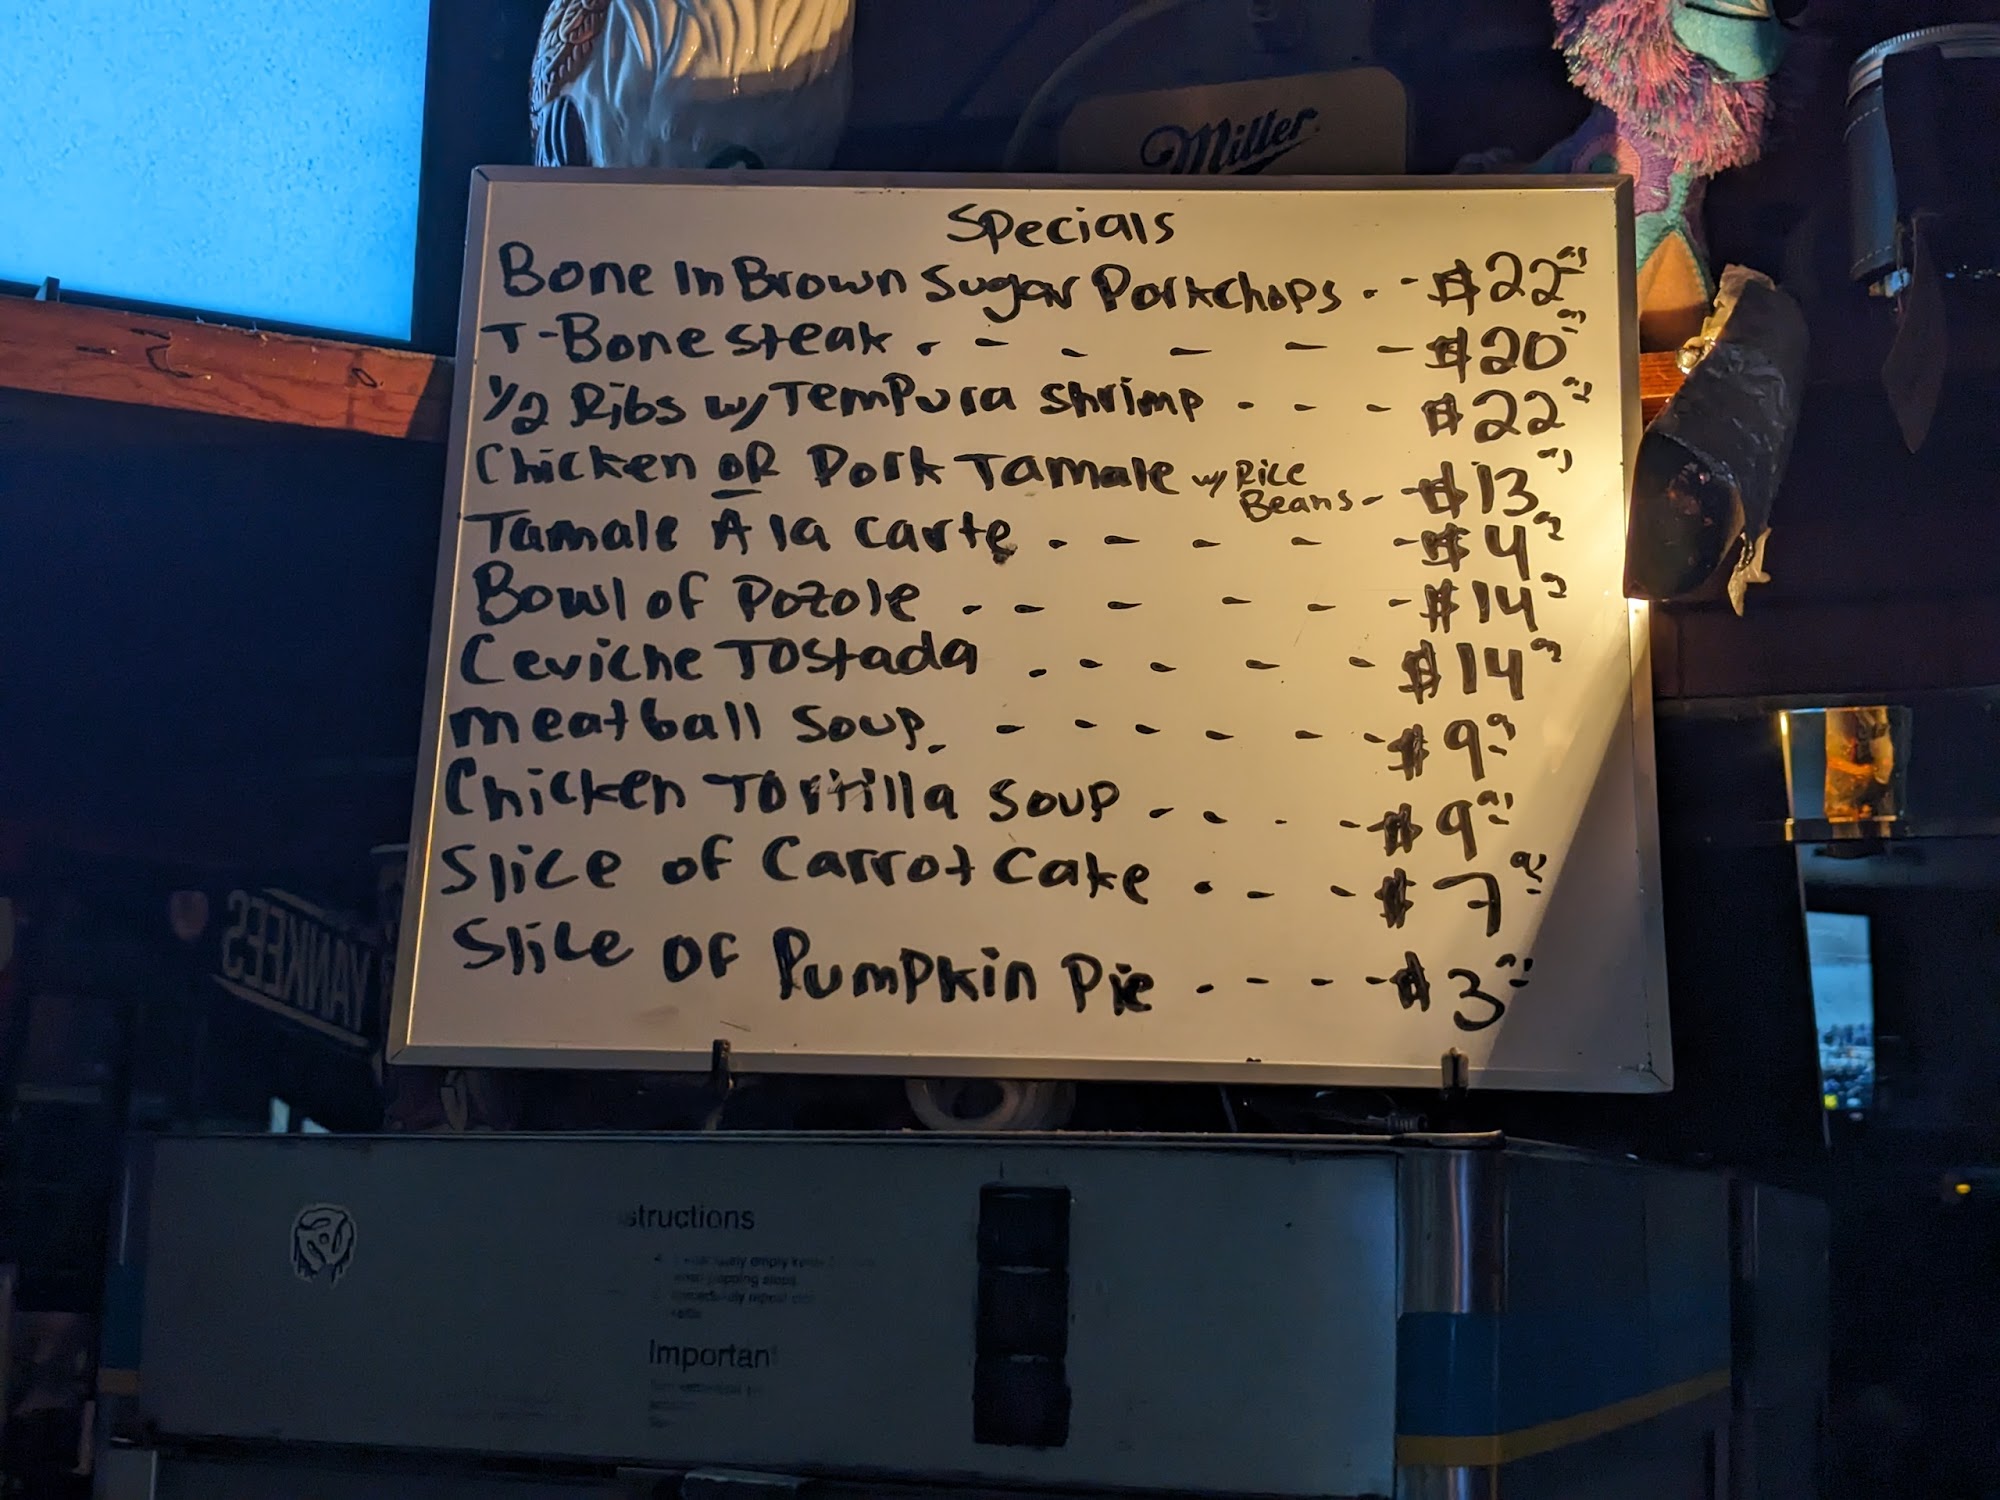 Miller
Specials
Bone In Brown Sugar Porkchops . - $22
T-Bone steak . - - - - - $20
1/2 Ribs w/ Tempura shrimp - - - $22
Chicken OR Pork Tamale w/ Rice Beans - - $13
Tamale A la carte . - - - - $4
Bowl of Pozole . - - - - - $14
Ceviche Tostada . - - - - $14
meatball soup . - - - - - - $9
Chicken Tortilla soup - - - - $9
Slice of Carrot Cake . - - $7
Slice of Pumpkin Pie - - - - $3
YANKEES
structions
Importan